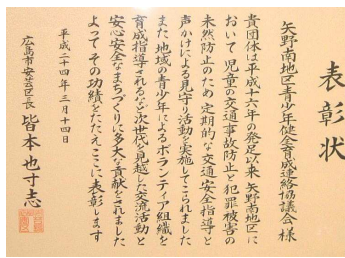 表彰状
矢野南地区青少年健全育成連絡協議会 様
貴団体は平成十六年の発足以来 矢野南地区に
おいて 児童の交通事故防止と犯罪被害の
未然防止のため 定期的な交通安全指導と
声かけによる見守り活動を実施してこられました
また 地域の青少年によるボランティア組織を
育成指導されるなど 次世代を見越した交流活動と
安心安全なまちづくりに多大な貢献をされました
よって その功績をたたえ ここに表彰します
平成二十四年三月十四日
広島市安芸区長 皆本 也寸志